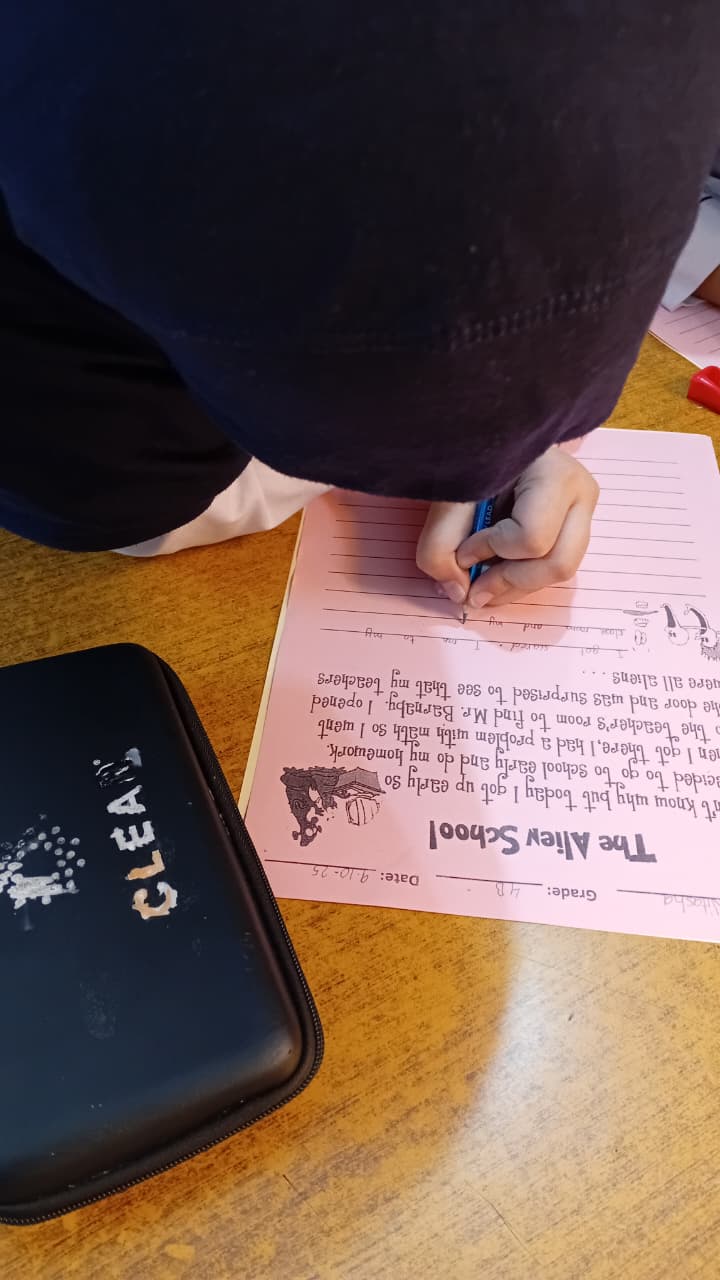 Nitasha Grade: 4B Date: 9-10-25
The Alien School
n't know why but today I got up early so
ecided to go to school early and do my homework.
hen I got there, I had a problem with math so I went
o the teacher's room to find Mr. Barnaby. I opened
he door and was surprised to see that my teachers
were all aliens ...
I got scared. I ran to my
class room and my
CLEAR
LEAD